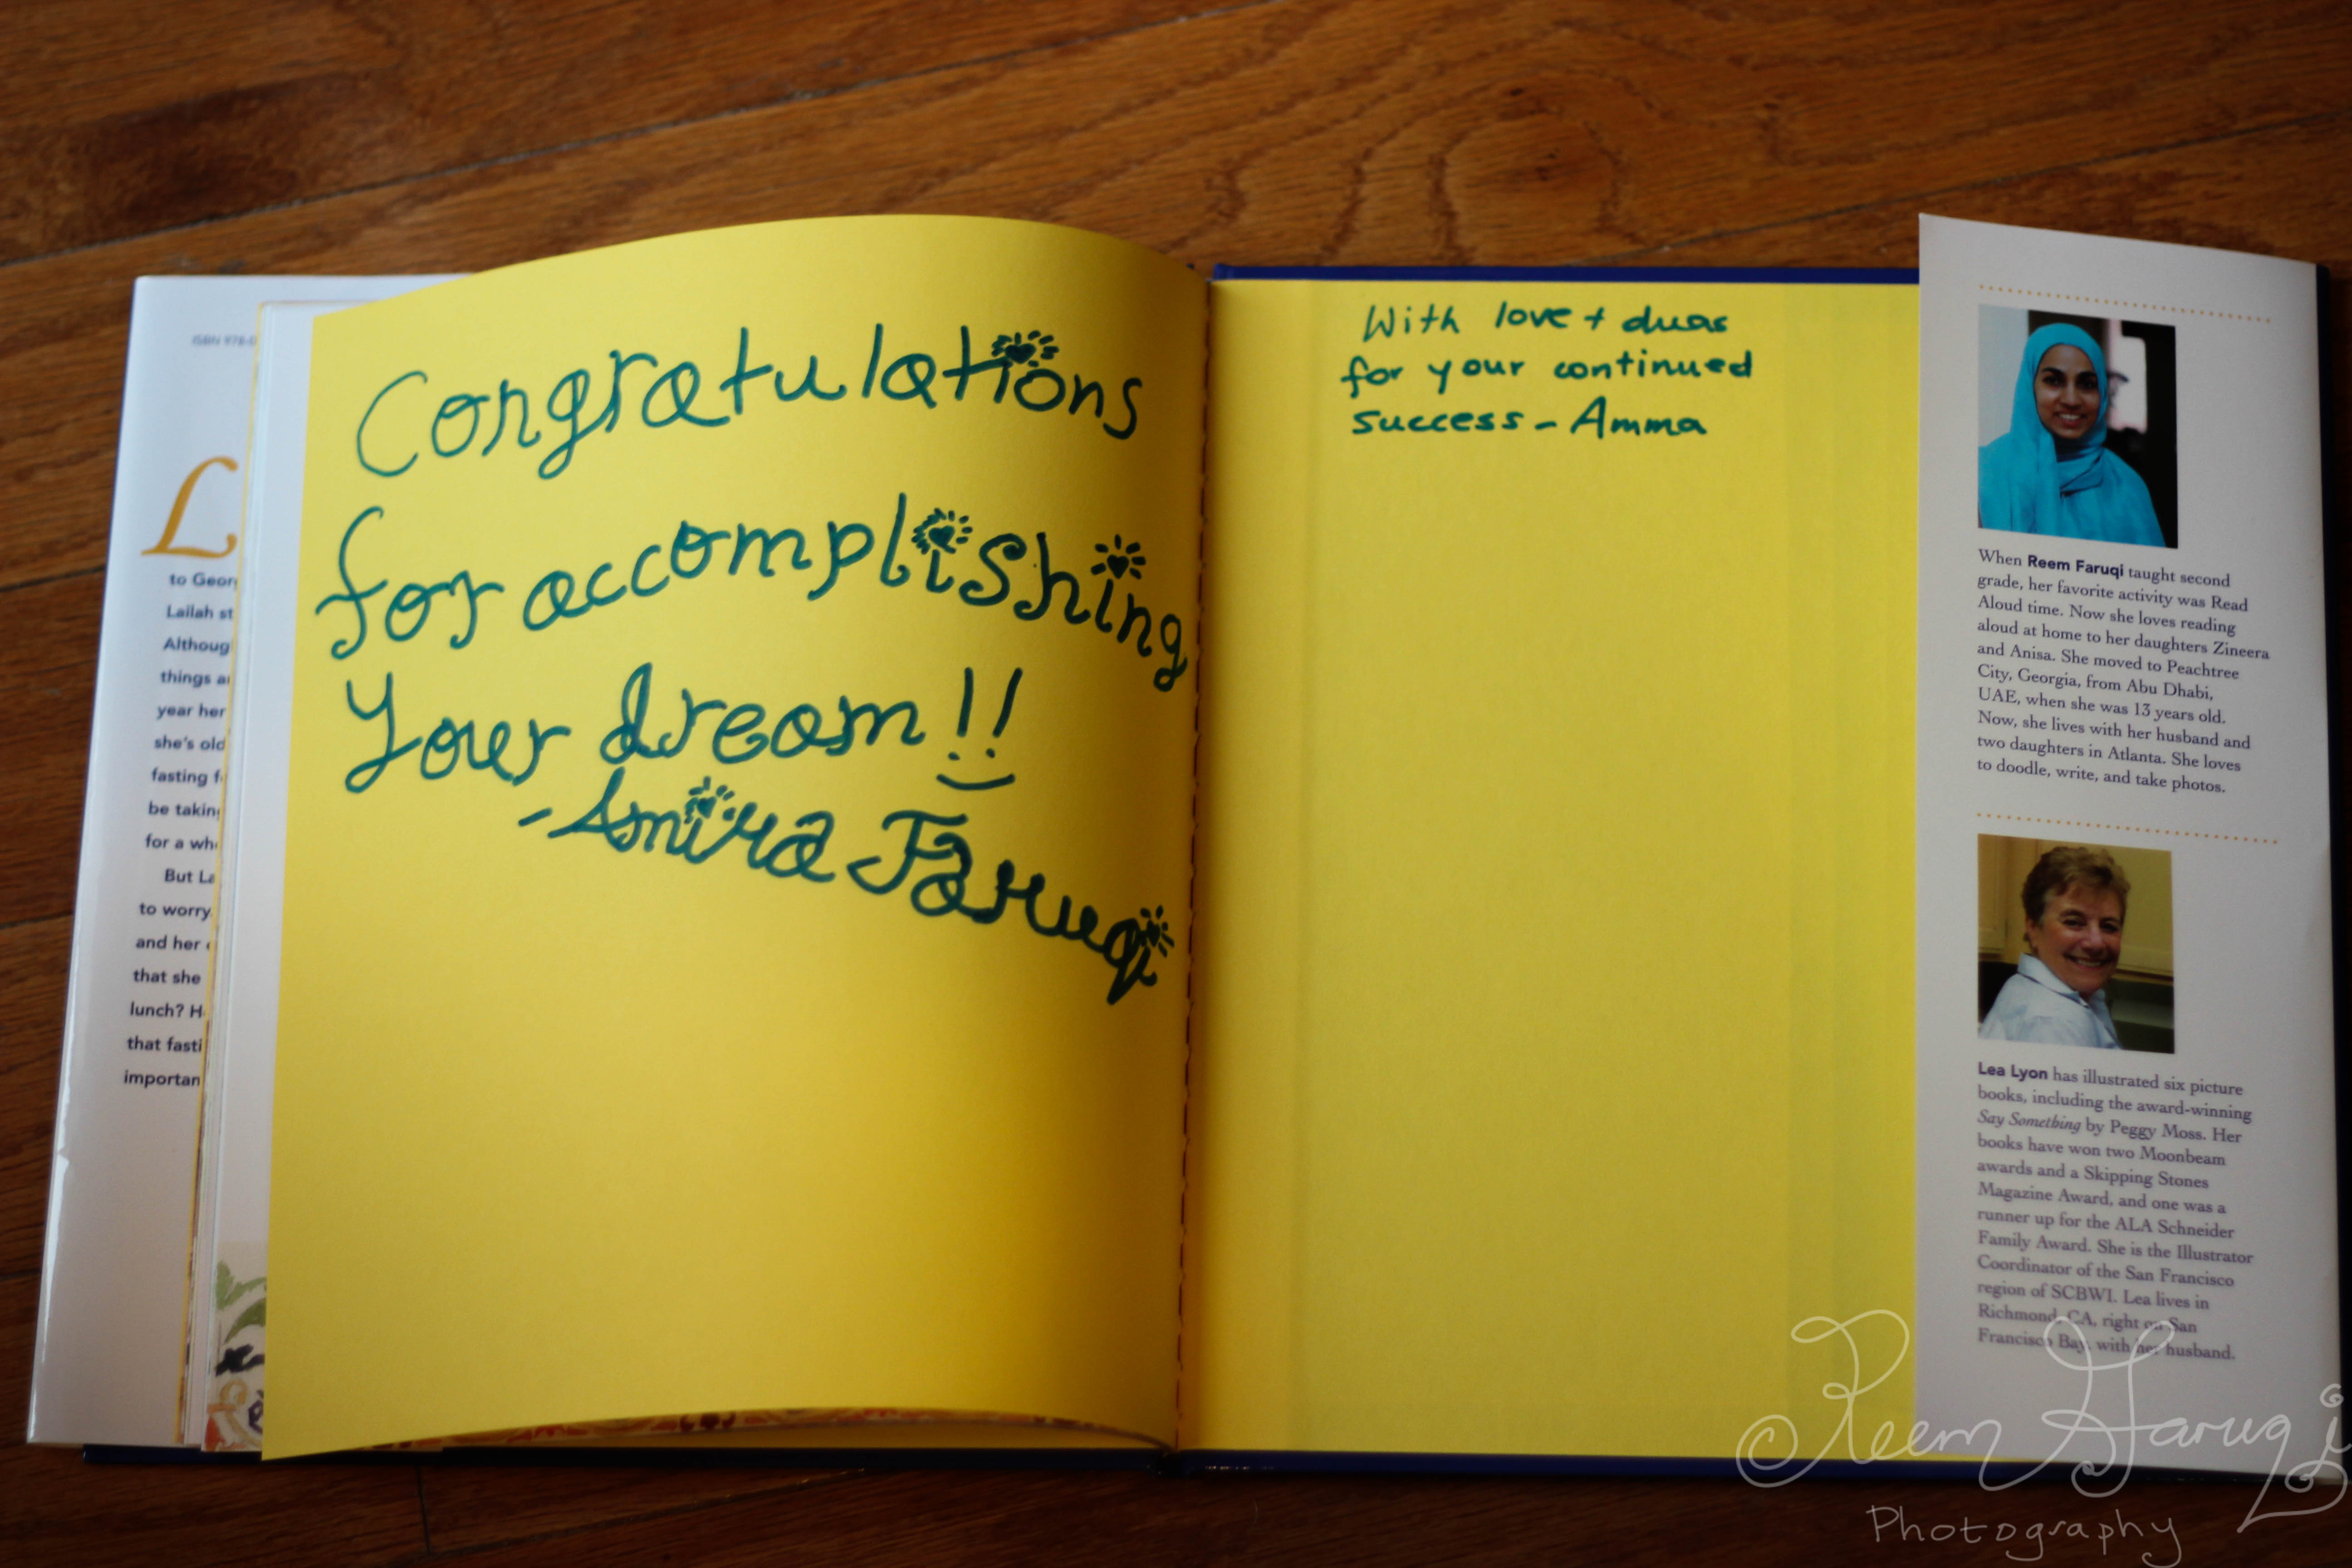 ISBN 978-0
L
to Geor
Lailah st
Althoug
things a
year her
she's old
fasting f
be taking
for a wh
But La
to worry.
and her
that she
lunch? H
that fasti
importan
Congratulations
for accomplishing
Your dream!!
- Amira Faruqi
With love + duas
for your continued
success - Amma
When Reem Faruqi taught second
grade, her favorite activity was Read
Aloud time. Now she loves reading
aloud at home to her daughters Zineera
and Anisa. She moved to Peachtree
City, Georgia, from Abu Dhabi,
UAE, when she was 13 years old.
Now, she lives with her husband and
two daughters in Atlanta. She loves
to doodle, write, and take photos.
Lea Lyon has illustrated six picture
books, including the award-winning
Say Something by Peggy Moss. Her
books have won two Moonbeam
awards and a Skipping Stones
Magazine Award, and one was a
runner up for the ALA Schneider
Family Award. She is the Illustrator
Coordinator of the San Francisco
region of SCBWI. Lea lives in
Richmond, CA, right on San
Francisco Bay, with her husband.
© Reem Faruqi
Photography